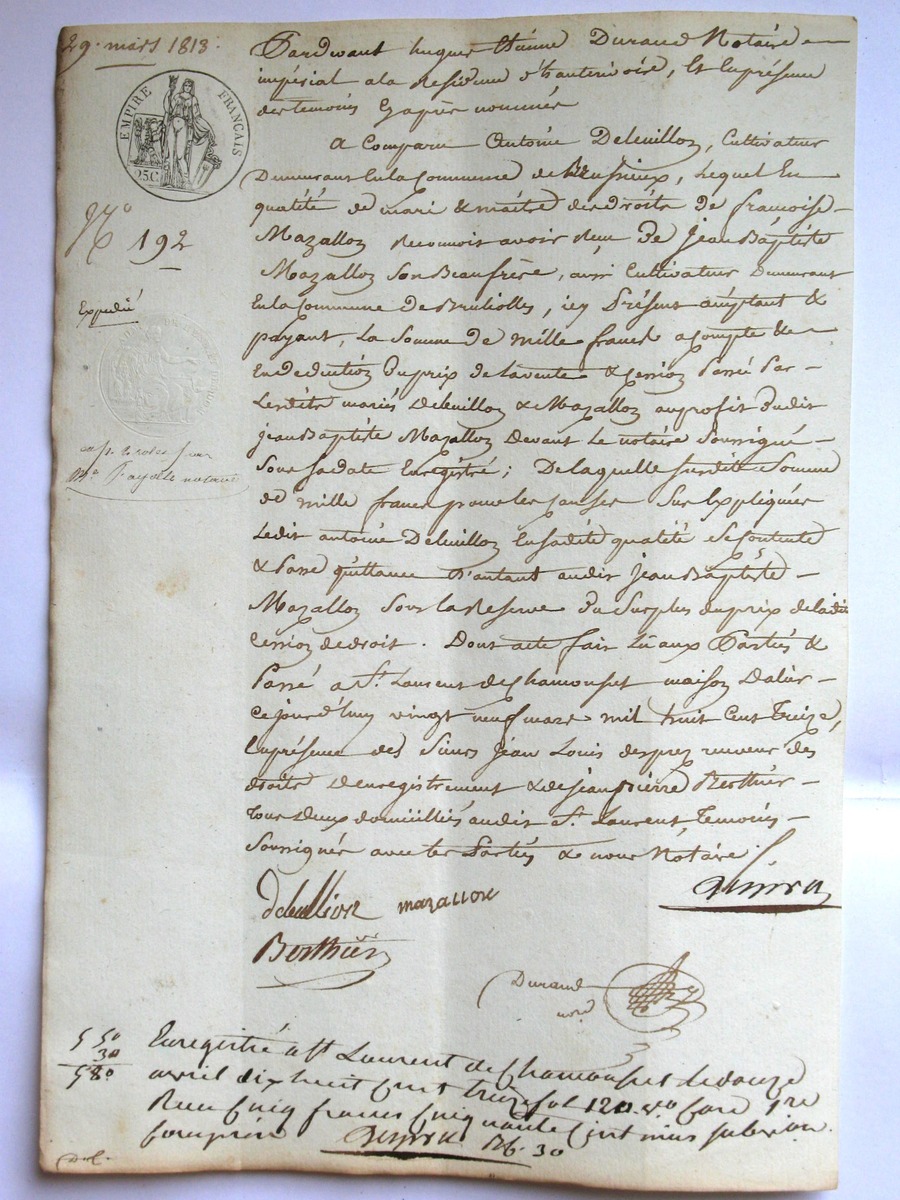 29. mars 1813.
EMPIRE FRANÇAIS
25C
N.º 192
Expédié
Me Fayolle notaire
Pardevant hugues Etienne Durand Notaire
impérial a la Residence et en présence
des temoins cy après nommés
A Comparu Antoine Deleuilloz, Cultivateur
Demeurant En la Commune de Bessieux, Lequel En
qualité de mari & maître des droits de francoise
Mazalloz Reconnoit avoir Reçu De Jean Baptiste
Mazalloz Son Beaufrère, aussi Cultivateur Demeurant
En la Commune De Brulliolles, icy Présent acceptant &
payant, La Somme De Mille francs a compte &
En deduction Du prix de la vente & Cession Passé Par
Lesdits mariés Deleuilloz & Mazalloz au profit Dudit
Jean Baptiste Mazalloz Devant Le notaire Soussigné
Sous sa date Enregistré; De laquelle susditte Somme
de mille francs pour les Causes Sus Expliquées
Ledit antoine Deleuilloz En sadite qualité se Contente
& Passe quittance D'autant audit Jean Baptiste
Mazalloz Sous la Reserve Du Surplus du prix de ladite
Cession de droit. Dont acte fait Lu aux Parties &
Passé a St. Laurent de Chamousset maison Dalier
Ce jourd'huy vingt neuf mars mil huit Cent Treize,
En présence des Sieurs Jean Louis desprez receveur des
droits d'enregistrement & de Jean Pierre Berthier
Tous Deux domiciliés audit St. Laurent, Temoins
Soussignés avec les Parties & nous Notaire.
deleullion mazallon
Berthier
Durand
nore
5 50
30
5 80
Enregistré a St Laurent de Chamousset le douze
avril dix huit cent treize fol 120 Vo Case 1re
Reçu Cinq francs Cinquante Centimes
Compris 30